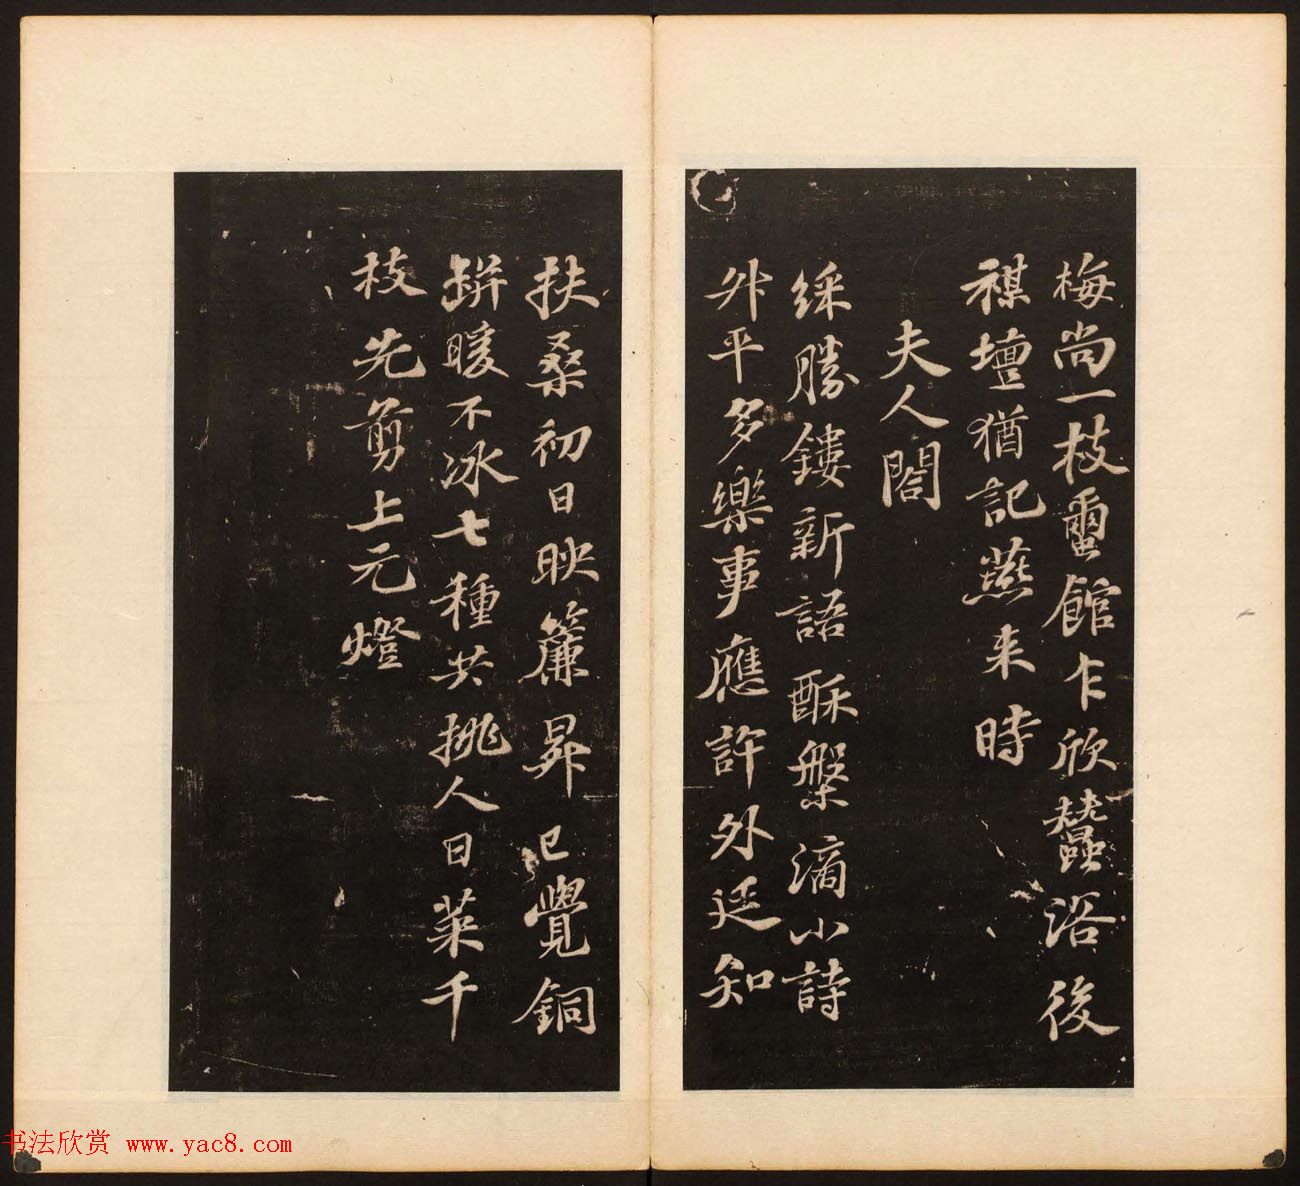 梅尚一枝蠒館乍欣蠶浴後
禖壇猶記燕来時
夫人閤
綵勝鏤新語酥槃滴小詩
升平多樂事應許外廷知
扶桑初日映簾昇已覺銅
缾暖不冰七種共挑人日菜千
枝先剪上元燈
书法欣赏 www.yac8.com